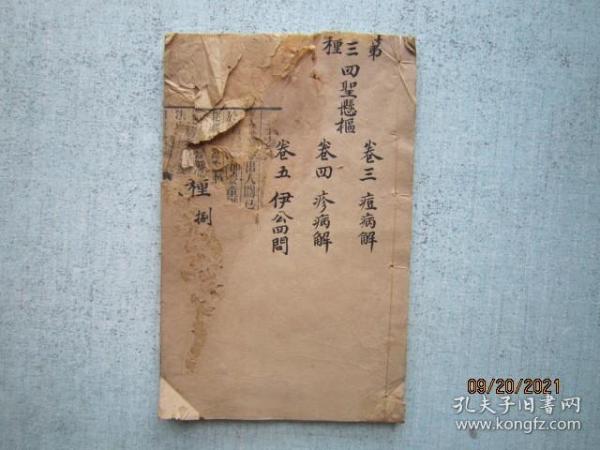 第三種
四聖懸樞
卷三 痘病解
卷四 疹病解
卷五 伊公四問
種 捌
出人間已
09/20/2021
孔夫子旧書网
www.kongfz.com